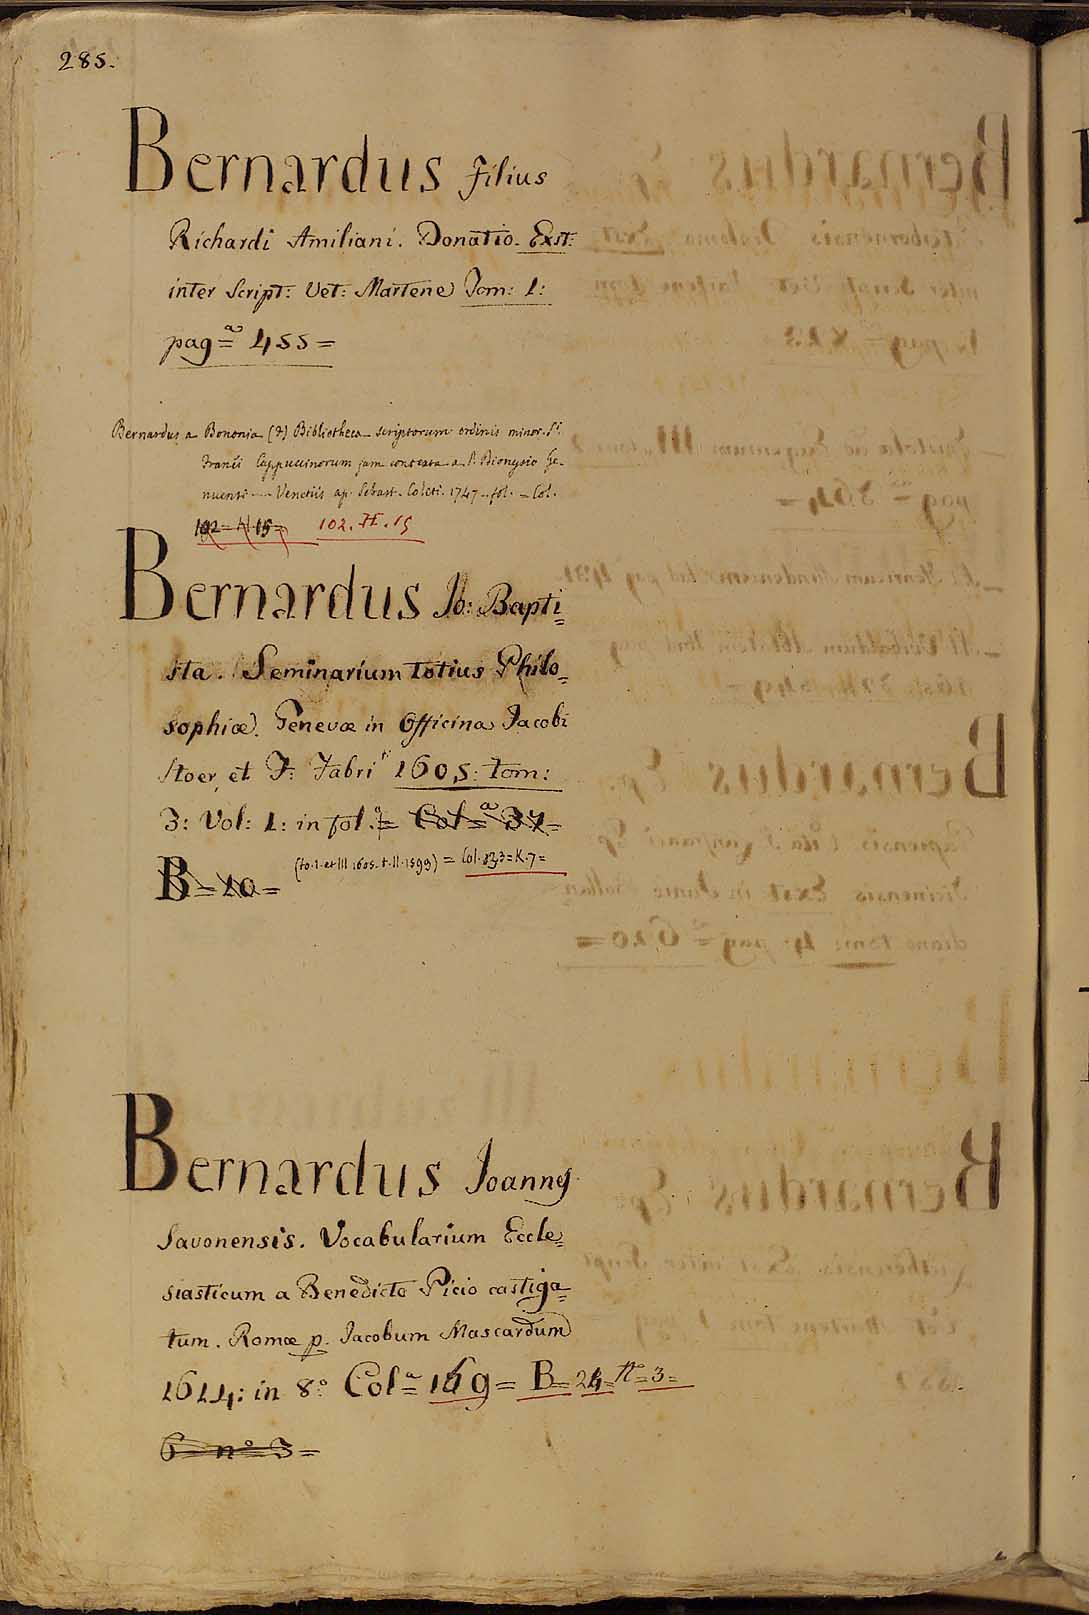 285.
Bernardus Filius
Richardi Amiliani. Donatio. Exst:
inter Script: Vet: Martene Tom: 1:
pagᵃ= 455=
Bernardus a Bononia (de) Bibliotheca scriptorum ordinis minor. Sⁱ
Franci Cappucinorum jam contexta a P. Dionysio Ge-
nuensi --- Venetiis ap. Sebast. Coleti. 1747 - fol. - Col.
102 = H 15 = 102. H. 15
Bernardus Jo: Bapti=
sta. Seminarium totius Philo=
sophiæ. Genevæ in Officina Jacobi
Stoer, et F: Fabri 1605: tom:
3: Vol: 1: in fol.= Colᵃ= 37=
B=10=
(to. I. et III 1605. t. II. 1599) = Col. 133=K.7=
Bernardus Joannes
Savonensis. Vocabularium Eccle=
siasticum a Benedicto Picio castiga=
tum. Romæ p. Jacobum Mascardum
1614: in 8º Colᵃ= 169= B=24= nº=3=
6 nº 3=